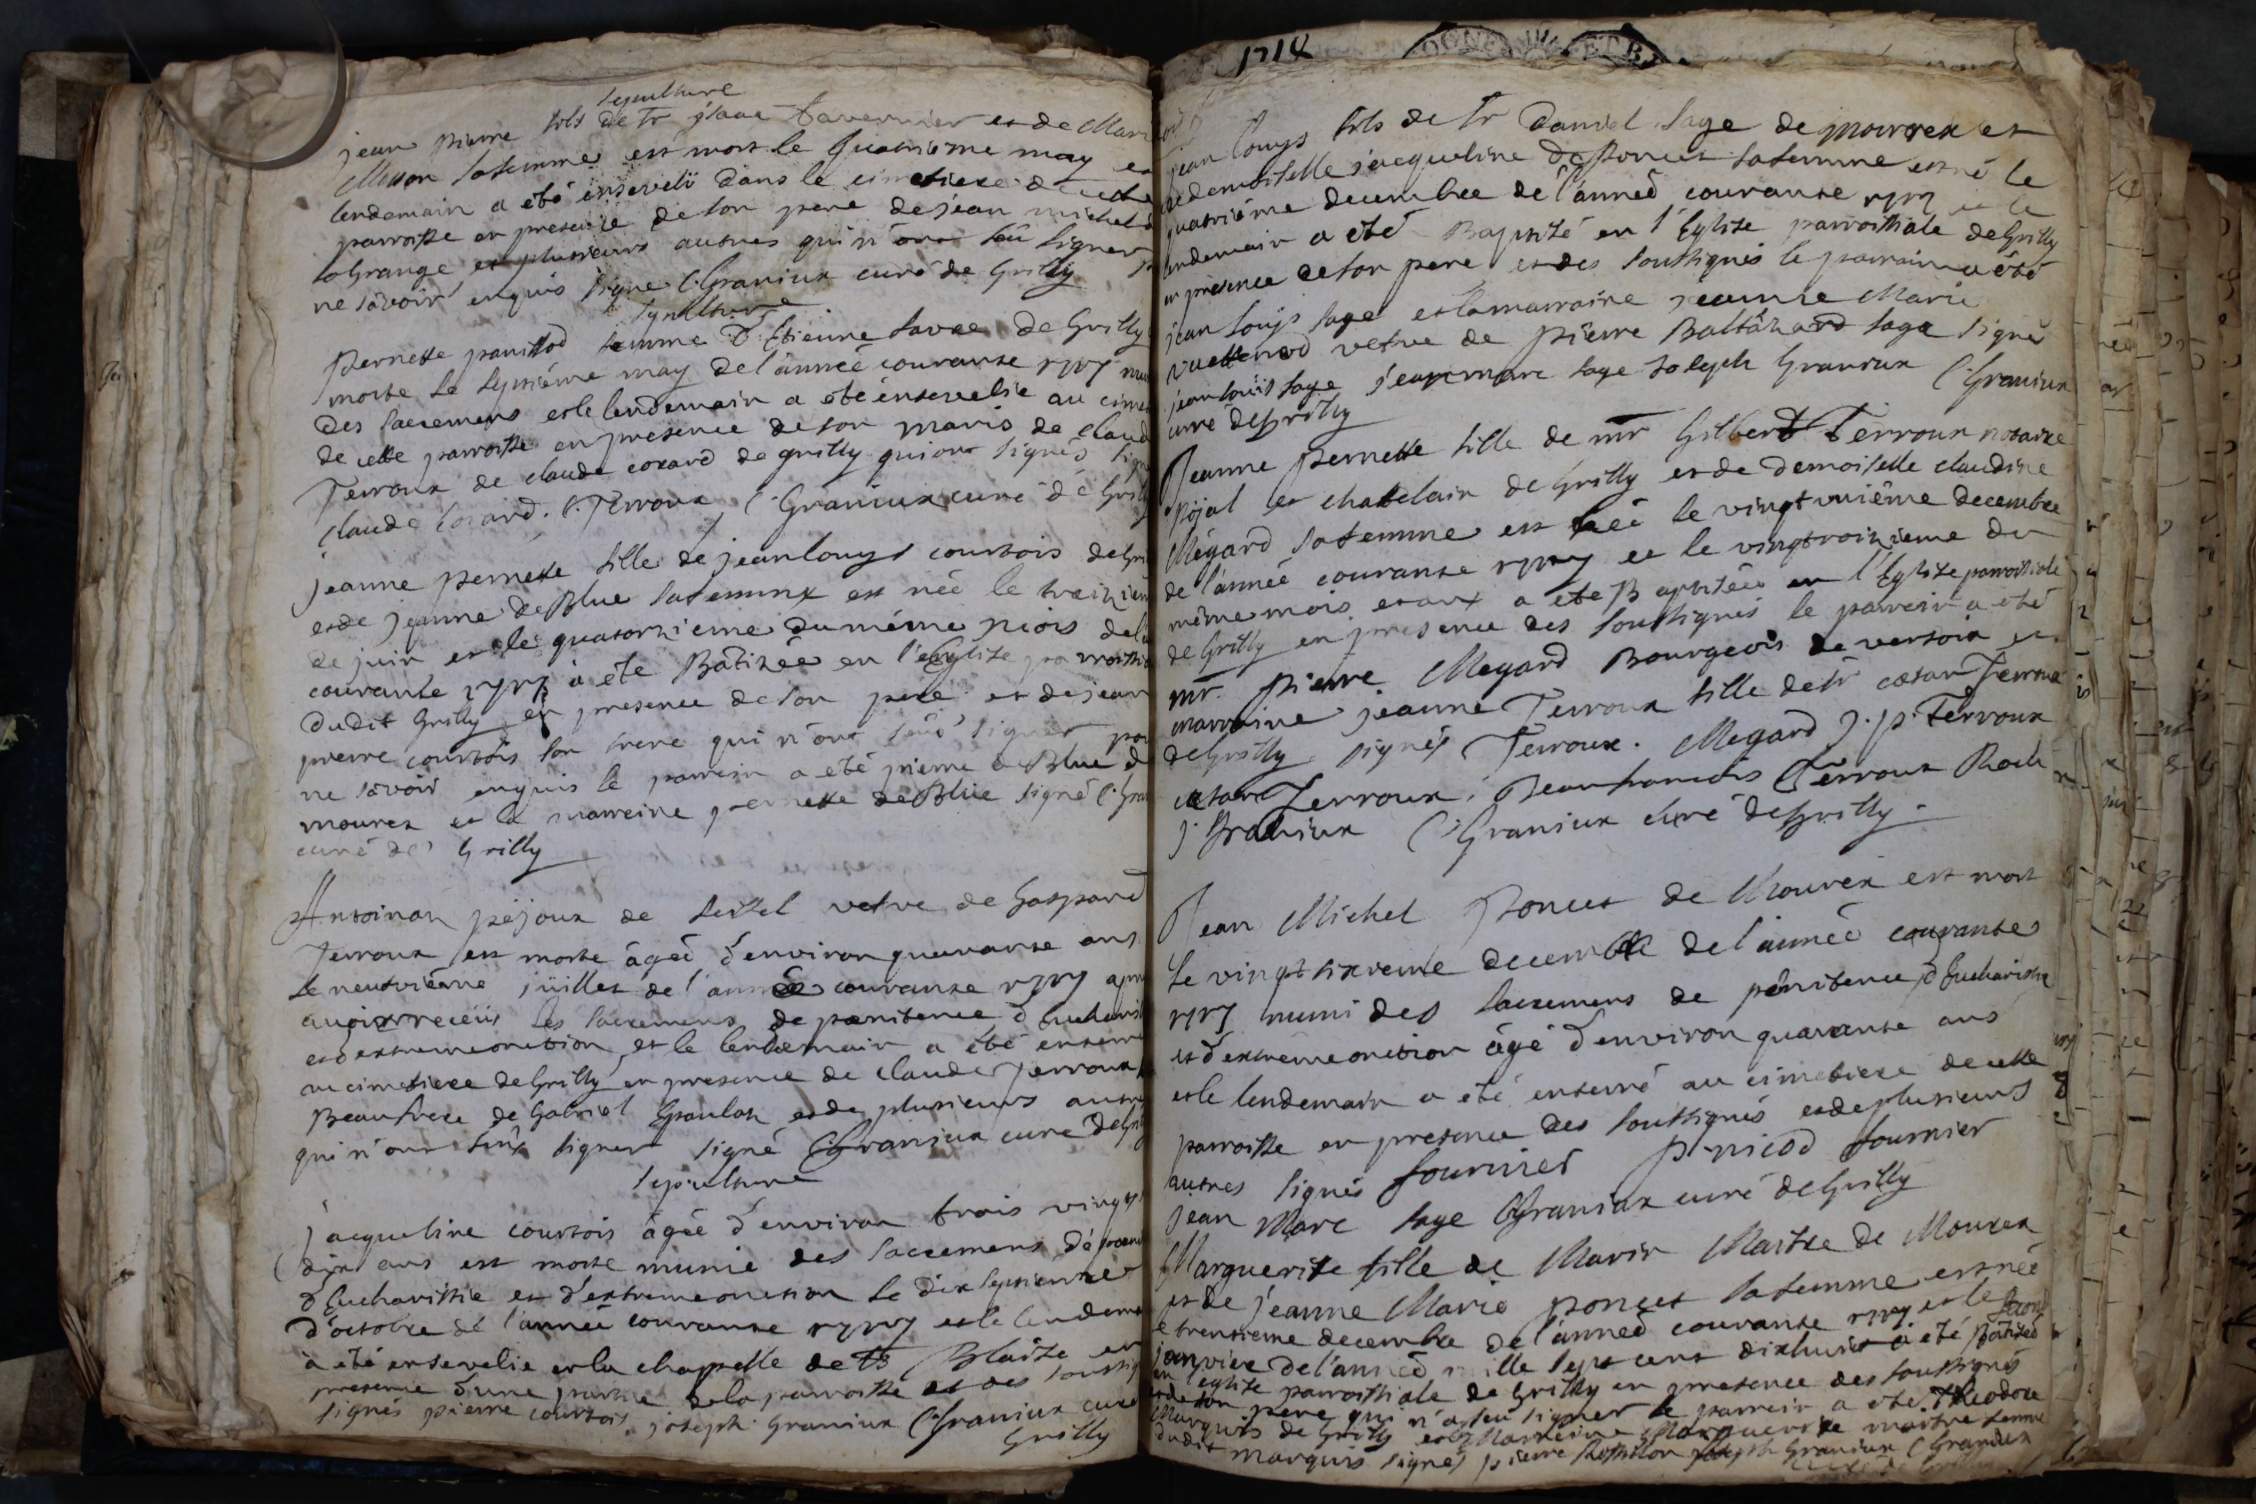 sepulture
jean pierre fils de Sr isaac Tavernier et de Mari
sa femme est mort le quatrième may et
lendemain a eté enseveli dans le cimetiere de cette
parroisse en presence de son pere de jean michel
la Grange et plusieurs autres qui n'ont seü signer p
ne sâvoir enquis signé C: Graniux curé de Grilly
sepulture
Pernette panissod femme d'Etienne favre de Grilly
morte le septiéme may de l'année couranse 1717 mu
des sacremens et le lendemain a eté ensevelie au cime
de cette parroisse en presence de son maris de claud
Terroux de claude coxard de grilly qui ont signés sign
claude coxard. C. Terroux C Graniux curé de Grilly
jeanne pernette fille de jean louys courtois de Gri
et de jeanne de Blue sa femme est née le treizièm
de juin et le quatorzieme du méme mois de l
courante 1717 à eté Bâtizée en l'eglise parroissia
dudit Grilly en presence de son pere et de jean
pierre courtois son frere qui n'ont seü signer pou
ne sâvoir enquis le parrein a eté pierre de Blue d
mourex et la marreine pernette de Blüe signé C: Gra
curé de Grilly
Antoinon péjoux de seissel vefve de Gaspard
Terroux est morte âgeé d'environ quaranse ans
le neufvième juïllet de l'année couranse 1717 apre
avoir receüs les sacremens de pœnitence d'Eucharist
et d'extremeonction et le lendemain a été enterré
au cimetiere de Grilly en presence de Claude Terroux
Beaufrere de Gabriel et de plusieurs autre
qui n'ont seüs signer signé C: Graniux curé de Gri
sepulture
jacqueline courtois âgée d'environ trois vingts
dix ans est morte munie des sacremens de pœni
d'Eucharistie et d'extremeonction le dix septieme
d'octobre de l'année couranse 1717 et le lendema
à eté ensevelie en la chappelle de St Blaise en
presence d'une partie de la parroisse et des soussig
signés pierre courtois joseph Graniux C: Graniux curé
Grilly
1718
jean louys fils de Sr Daniel sage de mourex et
de demoiselle jacqueline de Poncet sa femme est né le
quatriéme decembre de l'anneé couranse 1717 et le
lendemain a eté Baptisé en l'Eglise parroissiale de Grilly
en présence de son pere et des soussignés le parrain a été
jean louys sage et la marraine jeanne Marie
vuettend vefve de pierre Baltâzard sage signé
jean louis sage jean marc sage joseph Graniux C: Graniux
curé de Grilly
Jeanne pernette fille de mr Gilbert Terroux notaire
royal et chatelain de Grilly et de demoiselle claudine
Mégard sa femme est neé le vingt uniême decembre
de l'année couranse 1717 et le vingtroizieme du
même mois a eté Baptiseé en l'Eglise parroissiale
de Grilly en presence des soussignés le parrein a eté
mr pierre Megard Bourgeois de versoix et
marraine jeanne Terroux fille de Sr cæsar Terroux
de Grilly signés Terroux. Megard J. p. Terroux
cæsar Terroux, Jean francois Terroux Roch
J. Graniux C: Graniux curé de Grilly.
Jean Michel Poncet de Mourex est mort
le vingt sixieme decembre de l'année couranse
1717 muni des sacremens de pénitence d'Eucharistie
et d'extremeonction âgé d'environ quaranse ans
et le lendemain a eté enterré au cimetiere de cette
parroisse en presence des soussignés et de plusieurs
autres signés fournier P. nicod fournier
jean Marc sage C Graniux curé de Grilly
Marguerite fille de Marin Maitre de Mourex
et de jeanne Marie poncet sa femme est née
le trentieme decembre de l'anneé couranse 1717 et le second
janvier de l'anneé mille sept cent dixhuit a eté bâtiseé
en l'eglise parroissiale de Grilly en presence des soussignés
et de son pere qui n'a seü signer le parrein a eté Theodore
Marquis de Grilly et la Marreine Marguerite maitre femme
dudit marquis signés pierre Rossillon joseph Graniux C: Graniux